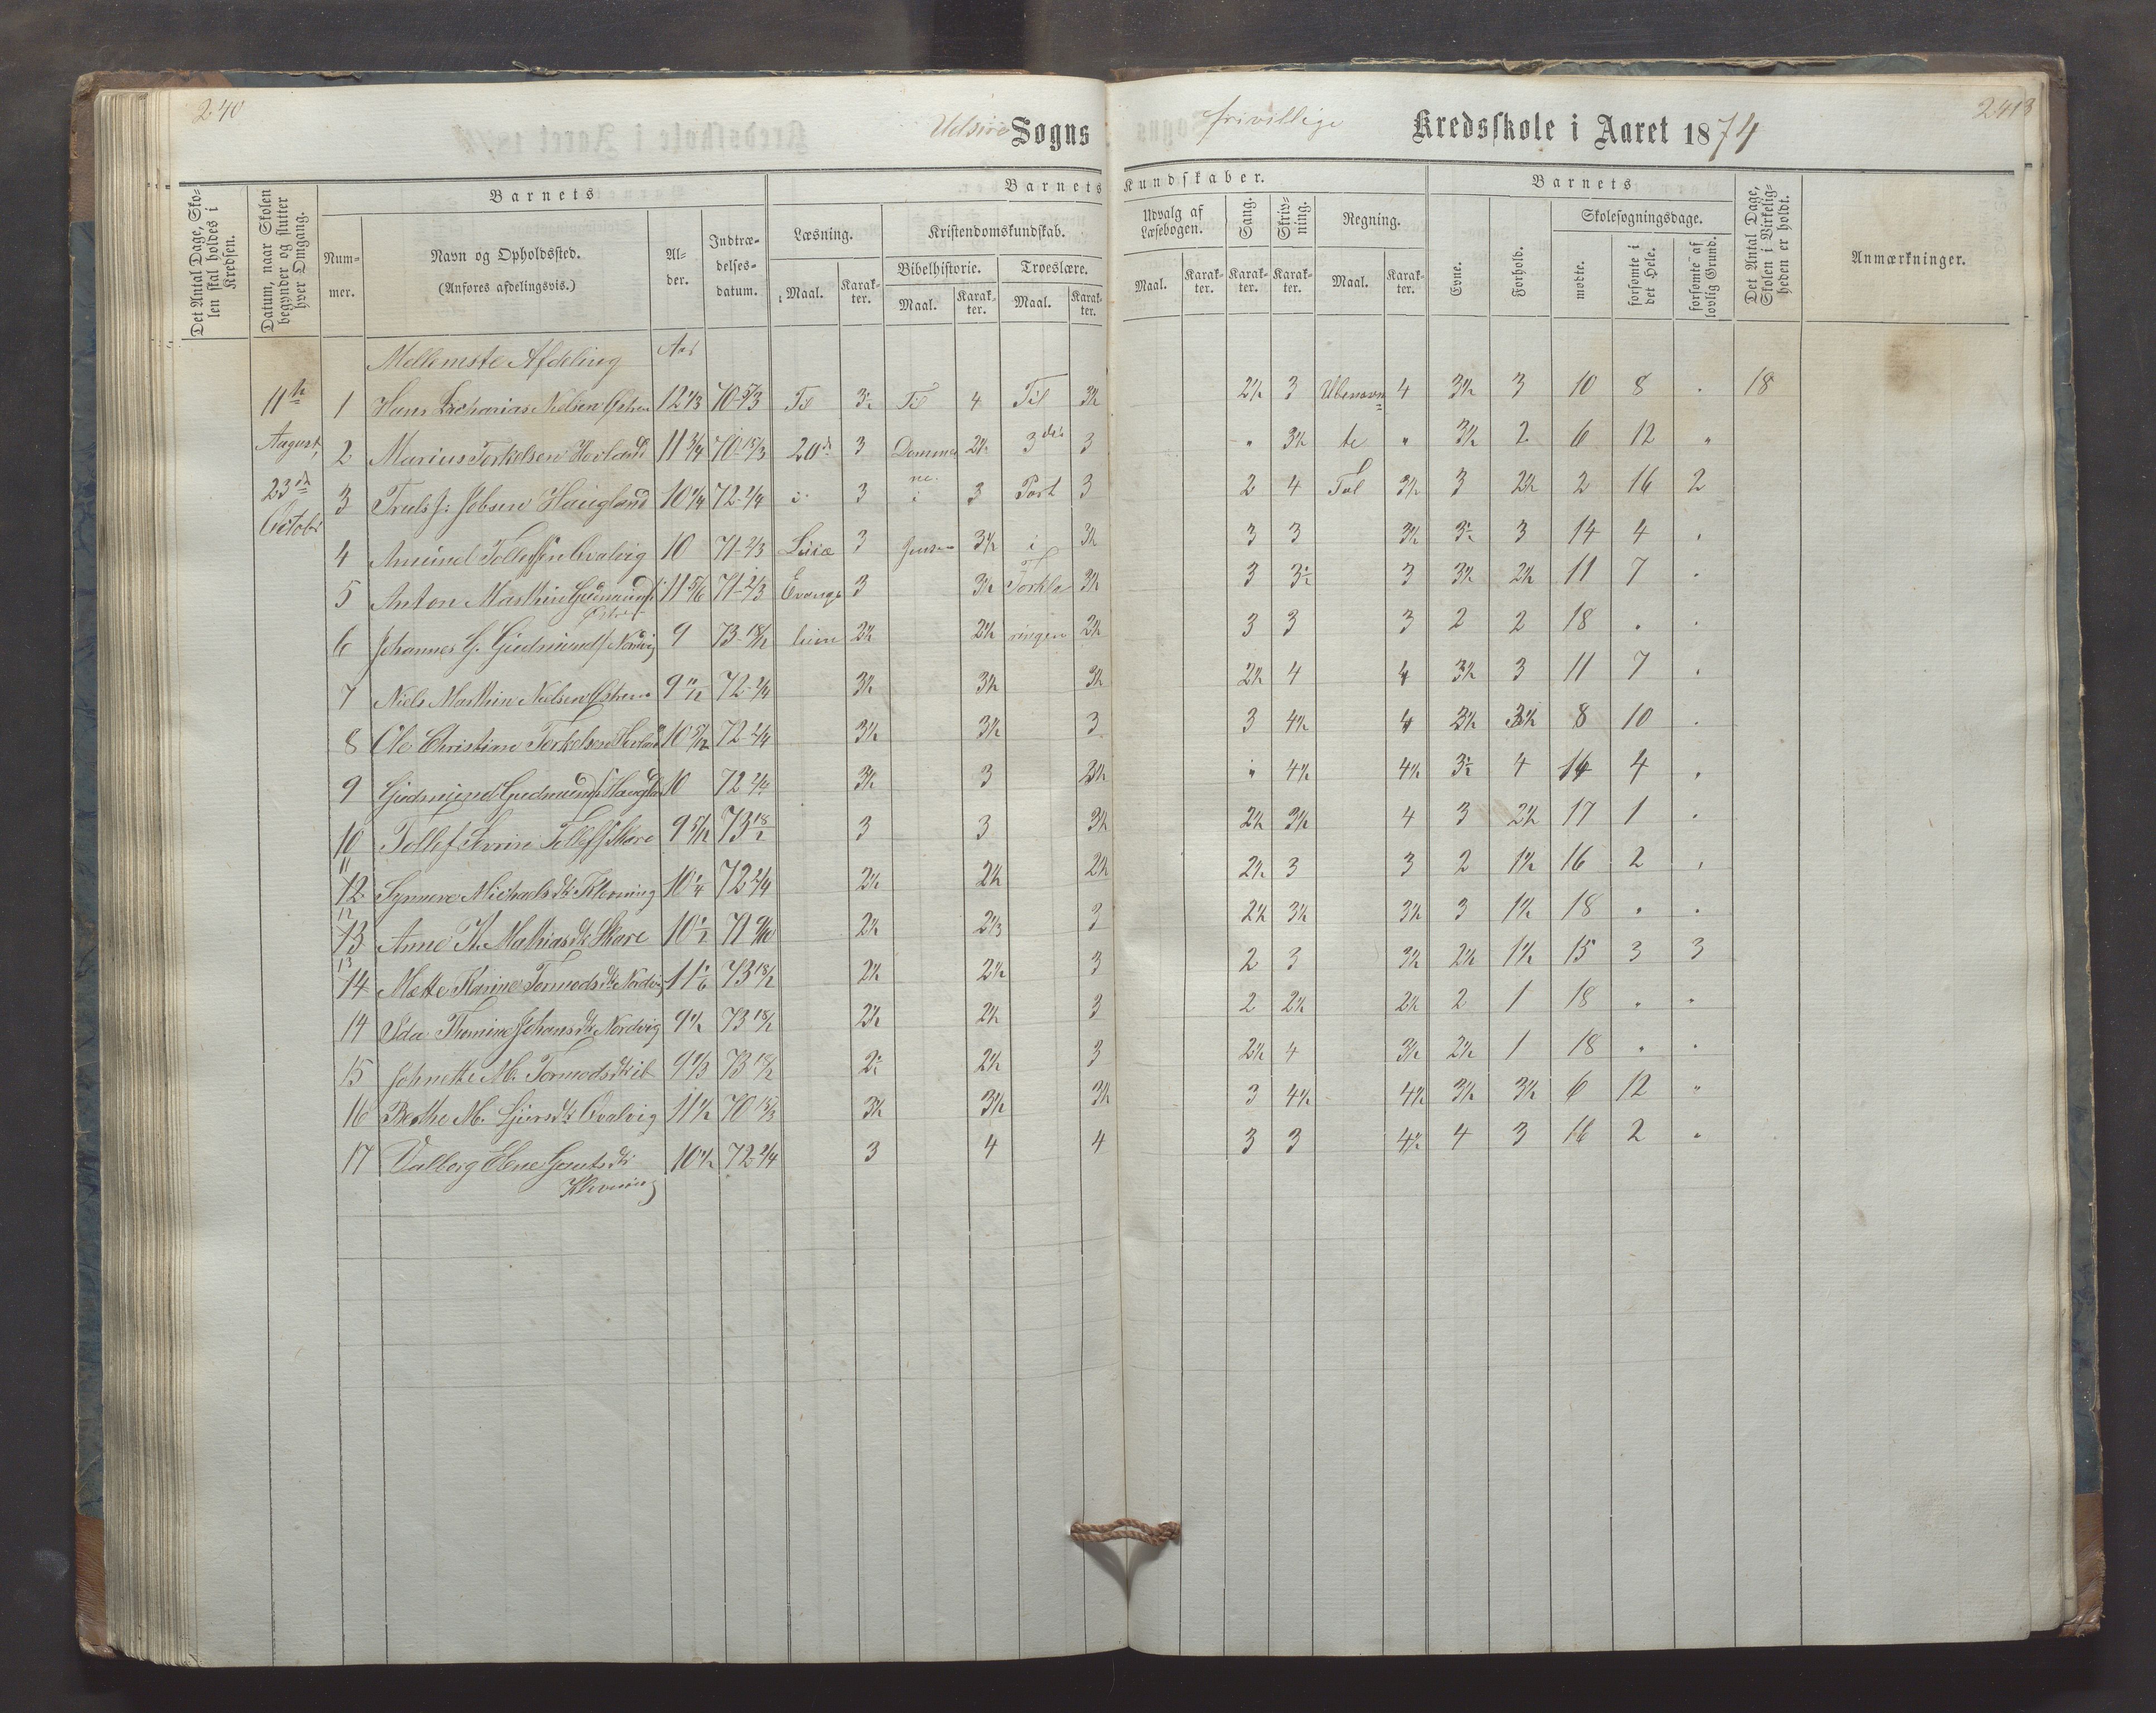 240
2413
Udsire Sogns frivillige Kredsskole i Aaret 1874
Det Antal Dage, Skolen skal holdes i Kredsen.
Datum, naar Skolen begynder og slutter hver Omgang.
Barnets
Nummer.
Navn og Opholdssted.
(Anføres afdelingsvis.)
Alder.
Indtrædelsesdatum.
Barnets Kundskaber.
Læsning.
Kristendomskundskab.
Bibelhistorie.
Troeslære.
Maal.
Karakter.
Maal.
Karakter.
Maal.
Karakter.
Udvalg af Læsebogen.
Sang.
Skrivning.
Regning.
Maal.
Karakter.
Karakter.
Karakter.
Maal.
Karakter.
Barnets
Evne.
Forhold.
Skolesøgningsdage.
mødte.
forsømte i det Hele.
forsømte af lovlig Grund.
Det Antal Dage, Skolen i Virkeligheden er holdt.
Anmærkninger.
Mellemste Afdeling Aar
11te 1 Hans Zacharias Nielsen 12 1/3 70-5/3 Til 3½ Til 4 Til 3½ 2½ 3 Ubenævn 4 3½ 3 10 8 . 18
August, 2 Marius Torkelsen Hovland 11 3/4 70-15/3 20de 3 Dommer 2½ 3die 3 " 3½ te " 3½ 2 6 12 "
23de ne.
October 3 Truls J. Jobsen Haugland 10 1/4 72-2/4 i 3 i 3 Part 3 2 4 Tal 3½ 3 2½ 2 16 2
4 Amund Tollefsen Qvalvig 10 71-2/3 3 3½ i 3½ 3 3 3½ 3½ 3 14 4 .
5 Anton Marthin Gudmunds. 11 5/6 71-2/3 Evange 3 3½ Forkla 3½ 3 3½ 3 3½ 2½ 11 7 .
6 Johannes G. Gudmunds. Nordvig 9 73-18/2 lium 2½ 2½ ringen 2½ 3 3 3 2 2 18 . .
7 Niels Marthin Nielsen 9 72-2/4 3½ 3½ 3½ 2½ 4 4 3½ 3 11 7 .
8 Ole Christian Torkelsen Hovland 10 5/12 72-2/4 3½ 3½ 3 3 4½ 4 3½ 3½ 8 10 .
9 Gudmund Gudmunds. Haugland 10 72 2/4 3½ 3 3½ " 4½ 4½ 3½ 4 14 4 .
10 Tollef Tollefs. Skare 9 5/12 73 18/2 3 3 3½ 2½ 3½ 4 3 2½ 17 1 .
11
12 Synneve Michaelsdtr Klovning 10 1/4 72 2/4 2½ 2½ 2½ 2½ 3 3 2 1½ 16 2 .
12
13 Anne Th. Mathiasdtr Skare 10 1/2 71 2½ 2 1/3 3 2½ 3½ 3½ 3 1½ 18 . .
13
14 Mette Karine Tormodsdtr Nordvig 11 1/6 73 18/2 2½ 2½ 3 2 3 3½ 2½ 1½ 15 3 3
14 Ida Thomine Johansdtr Nordvig 9½ 73 18/2 2½ 2½ 3 2 2½ 2½ 2 1 18 . .
15 Johnette M. Tormodsdtr ib 9 1/3 73 18/2 2½ 2½ 3 2½ 4 3½ 2½ 1 18 . .
16 Berthe M. Qvalvig 11½ 70 15/3 3½ 3½ 3½ 3 4½ 4½ 3½ 3½ 6 12 "
17 Valborg Elene Gautsdtr 10½ 72-2/4 3 4 4 3 3 4½ 4 3 16 2 .
Klovning